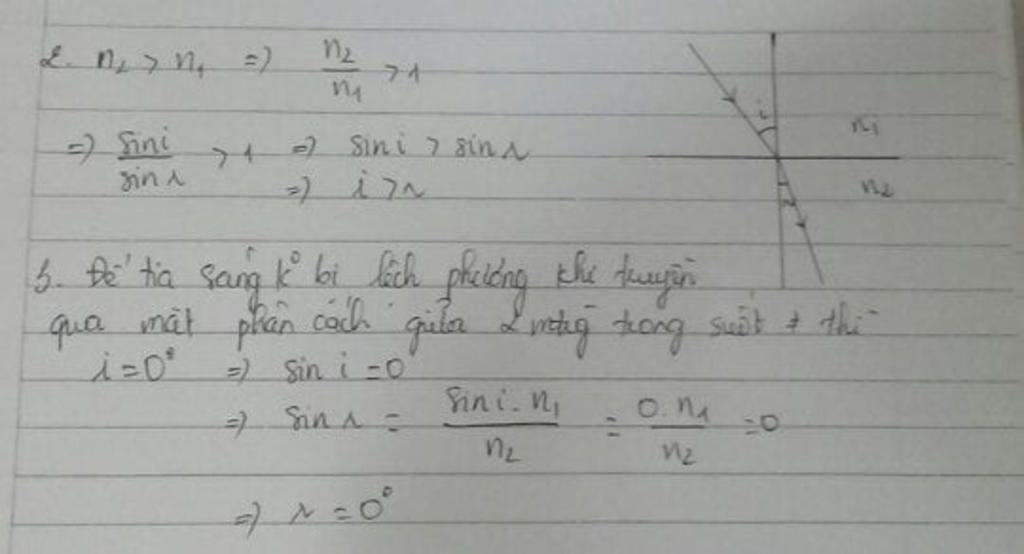 2. n₂ > n₁ => n₂/n₁ > 1
=> sin i/sin r > 1 => sin i > sin r
=> i > r
i
n₁
n₂
r
3. Để tia sáng k° bị lệch phương khi truyền
qua mặt phân cách giữa 2 mtrg trong suốt ≠ thì
i = 0° => sin i = 0
=> sin r = sin i . n₁/n₂ = 0 . n₁/n₂ = 0
=> r = 0°